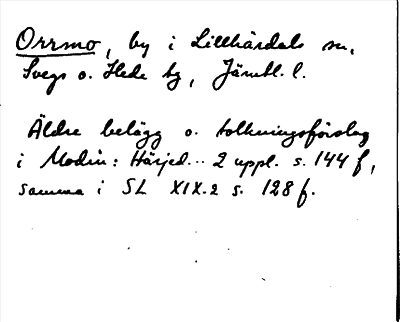 Orrmo, by i Lillhärdals sn,
Svegs o. Hede tg, Jämtl. l.
Äldre belägg o. tolkningsförslag
i Modin: Härjed... 2 uppl. s. 144 f,
samma i SL XIX.2 s. 128 f.